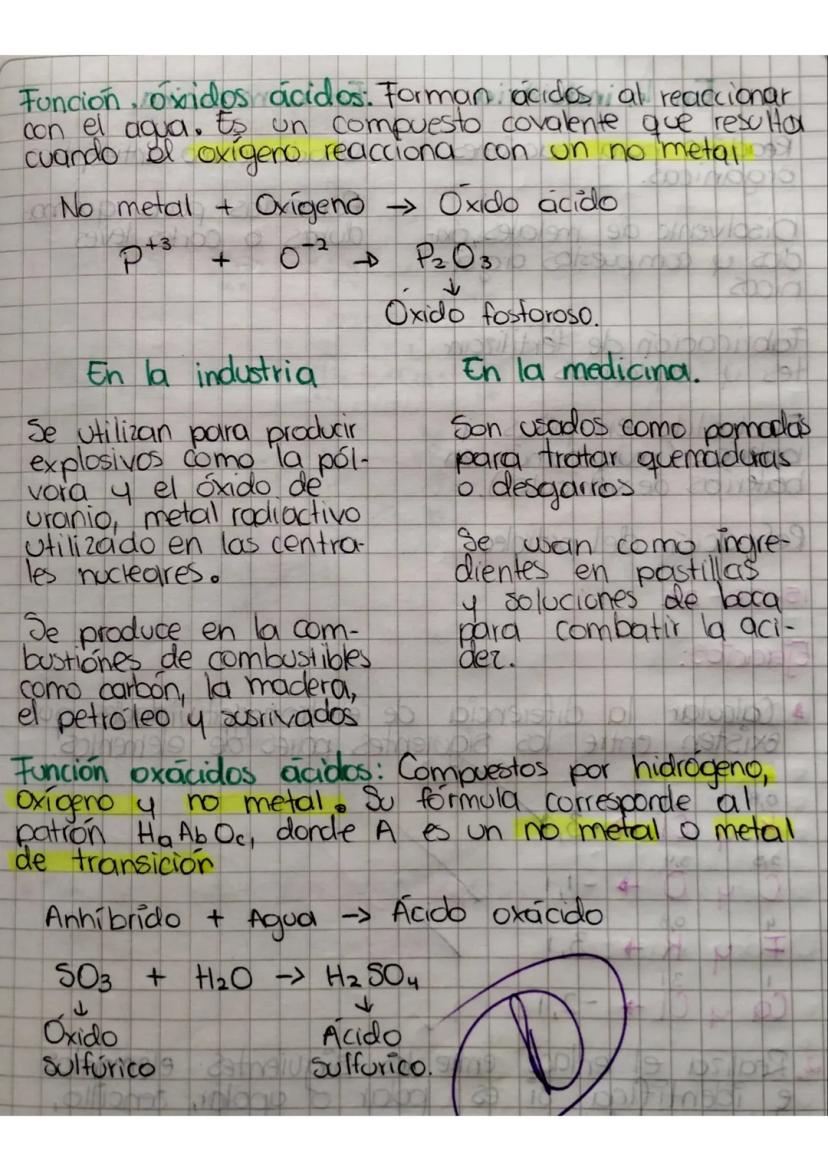 Función óxidos ácidos: Forman ácidos al reaccionar
con el agua. Es un compuesto covalente que resulta
cuando el oxígeno reacciona con un no metal
No metal + Oxígeno → Óxido ácido
P+3 + O-2 → P2O3
↓
Óxido fosforoso.
En la industria
Se utilizan para producir
explosivos como la pól-
vora y el óxido de
uranio, metal radiactivo
utilizado en las centra-
les nucleares.
Se produce en la com-
bustiónes de combustibles
como carbón, la madera,
el petróleo y susrivados
En la medicina.
Son usados como pomadas
para tratar quemaduras
o desgarros
Se usan como ingre-
dientes en pastillas
y soluciones de boca
para combatir la aci-
dez.
Función oxácidos ácidos: Compuestos por hidrógeno,
Oxígeno y no metal. Su fórmula corresponde al
patrón HaAbOc, donde A es un no metal o metal
de transición
Anhíbrido + Agua → Ácido oxácido
SO3 + H2O → H2SO4
↓ ↓
Óxido Ácido
Sulfúrico Sulfurico.